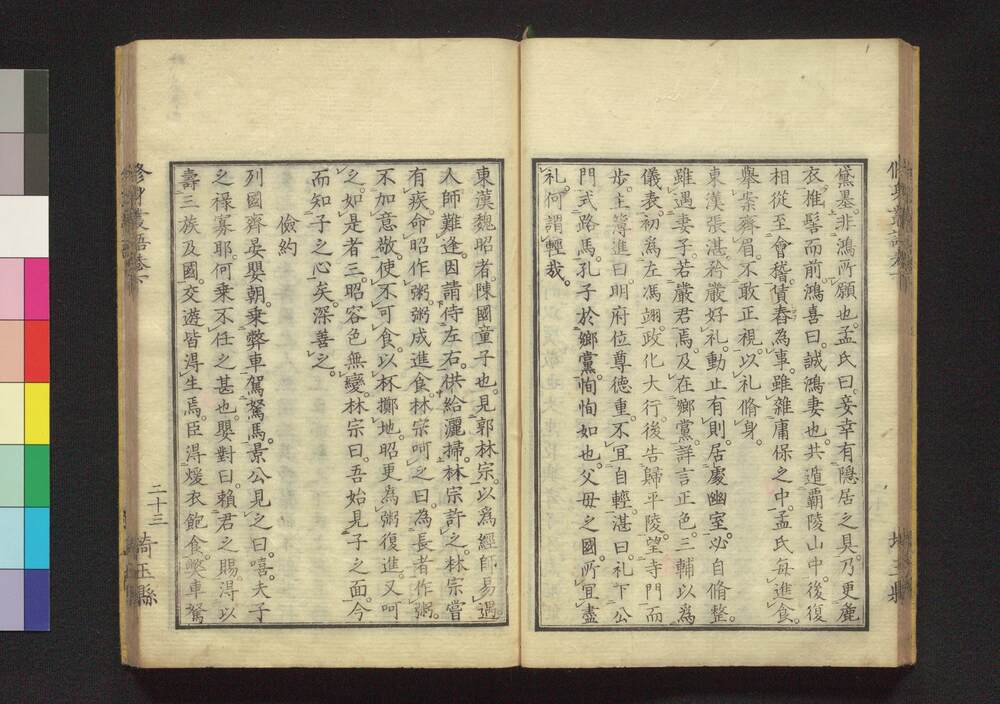 黛墨。非鴻所願也。孟氏曰。妾幸有隱居之具。乃更麁
衣。椎髻而前。鴻喜曰。誠鴻妻也。共遁覇陵山中。後復
相從至會稽。賃舂為事。雖雜庸保之中。孟氏每進食。
擧案齊眉。不敢正視。以礼脩身。
東漢張湛。矜嚴好礼。動止有則。居處幽室。必自脩整。
雖遇妻子。若嚴君焉。及在鄉黨。詳言正色。三輔以為
儀表。初為左馮翊。政化大行。後告歸平陵。望寺門而
步。主簿進曰。明府位尊德重。不宜自輕。湛曰。礼下公
門。式路馬。孔子於鄉黨。恂恂如也。父母之國。所宜盡
礼。何謂輕哉。
東漢魏昭者。陳國童子也。見郭林宗。以為經師易遇。
人師難逢。因請侍左右。供給灑掃。林宗許之。林宗嘗
有疾。命昭作粥。粥成進食。林宗呵之曰。為長者作粥。
不加意敬。使不可食。以杯擲地。昭更為粥復進。又呵
之。如是者三。昭容色無變。林宗曰。吾始見子之面。今
而知子之心矣。深善之。
儉約
列國齊晏嬰朝。乘弊車。駕駑馬。景公見之曰。嘻。夫子
之祿寡耶。何乘不任之甚也。嬰對曰。賴君之賜。得以
壽三族。及國交遊。皆得生焉。臣得煖衣飽食。弊車駑
修身叢語卷下
二十三
埼玉縣